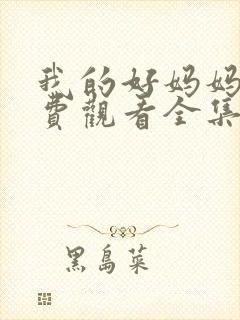 我的好妈妈
费觀看全集
黑島菜